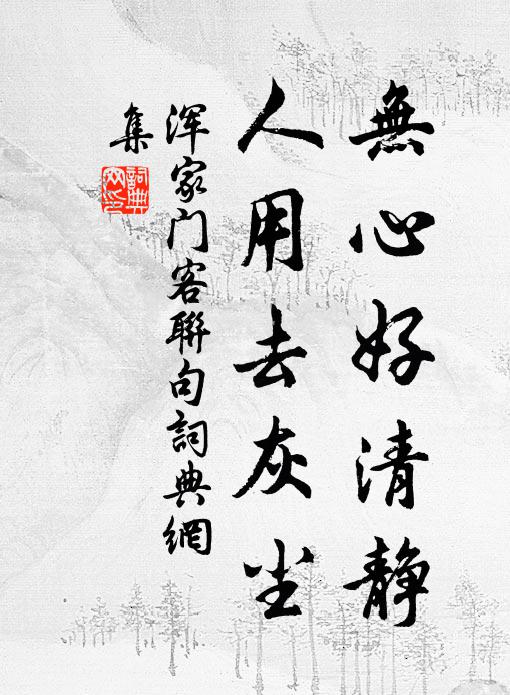 無心好清静
人用去灰尘
浑家门客聯句詞典網
集
詞典網印